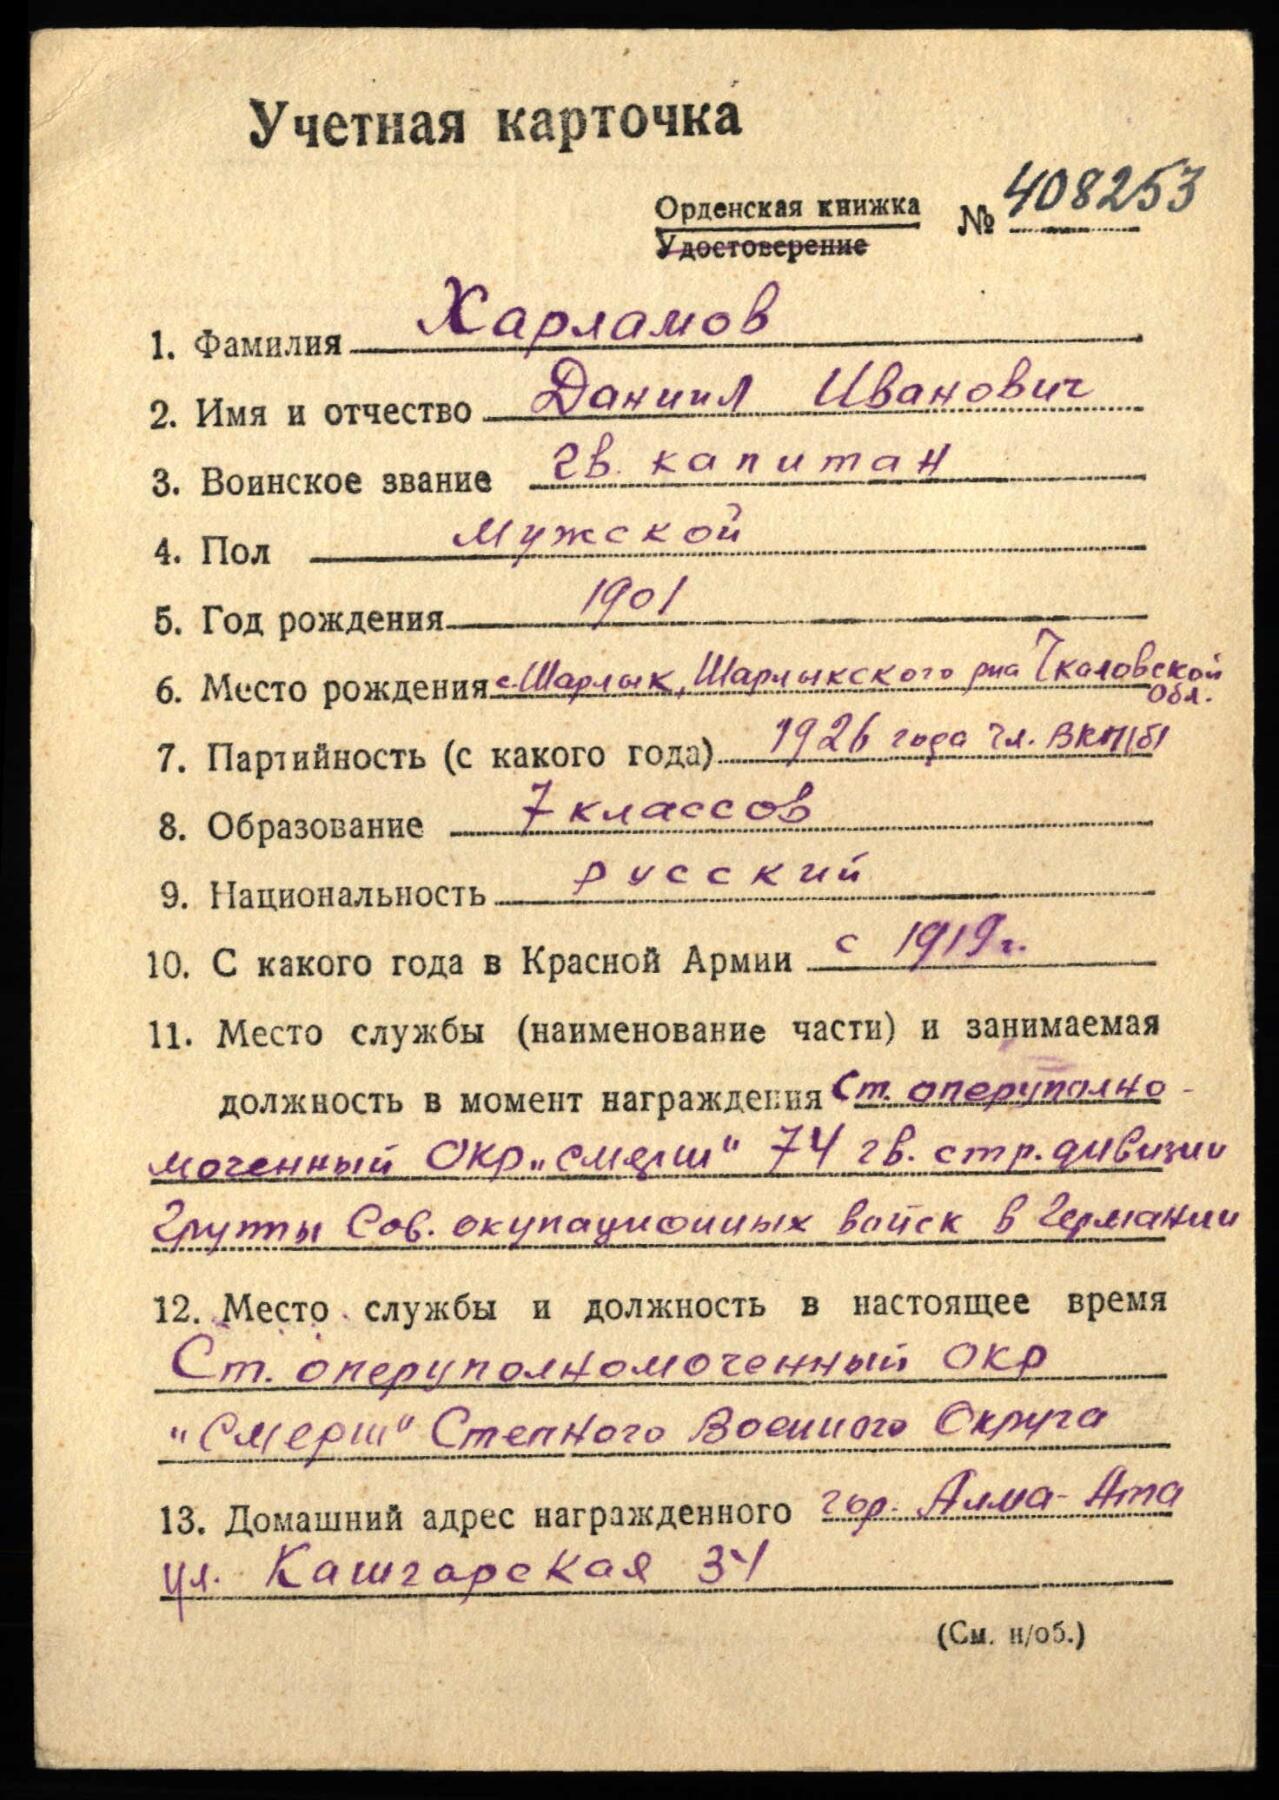 Учетная карточка
Орденская книжка № 408253
Удостоверение
1. Фамилия Харламов
2. Имя и отчество Даниил Иванович
3. Воинское звание гв. капитан
4. Пол мужской
5. Год рождения 1901
6. Место рождения с. Шарлык, Шарлыкского р-на Чкаловской
обл.
7. Партийность (с какого года) 1926 года чл. ВКП(б)
8. Образование 7 классов
9. Национальность русский
10. С какого года в Красной Армии с 1919 г.
11. Место службы (наименование части) и занимаемая
должность в момент награждения Ст. оперуполно-
моченный ОКР „Смерш" 74 гв. стр. дивизии
Группы Сов. окупационных войск в Германии
12. Место службы и должность в настоящее время
Ст. оперуполномоченный ОКР
"Смерш" Степного Военного Округа
13. Домашний адрес награжденного гор. Алма-Ата
ул. Кашгарская 34
(См. н/об.)